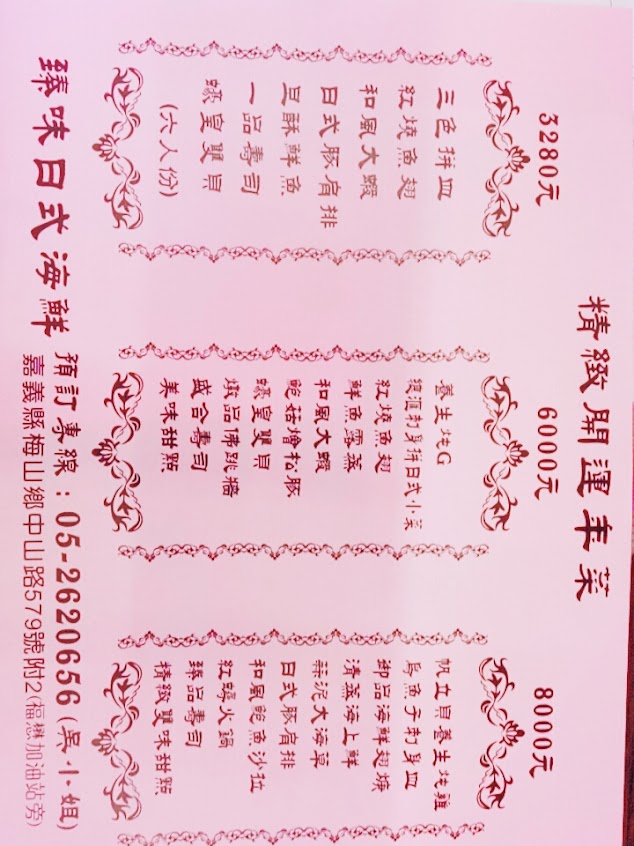 精緻開運年菜
3280元
三色拼皿
紅燒魚翅
和風大蝦
日式豚肩排
豆酥鮮魚
一品壽司
蠔皇雙貝
(六人份)
6000元
養生炖G
魚翅羹刺身拼日式小菜
紅燒魚翅
鮮魚露蒸
和風大蝦
鮑菇燴松豚
蠔皇雙貝
燉品佛跳牆
盛合壽司
美味甜點
8000元
帆立貝養生炖雞
烏魚子刺身皿
御品海鮮翅塘
清蒸海上鮮
蒜泥大海草
日式豚肩排
和風鮑魚沙拉
紅蟳火鍋
臻品壽司
精緻雙味甜點
臻味日式海鮮
預訂專線：05-2620656(吳小姐)
嘉義縣梅山鄉中山路579號附2(福懋加油站旁)